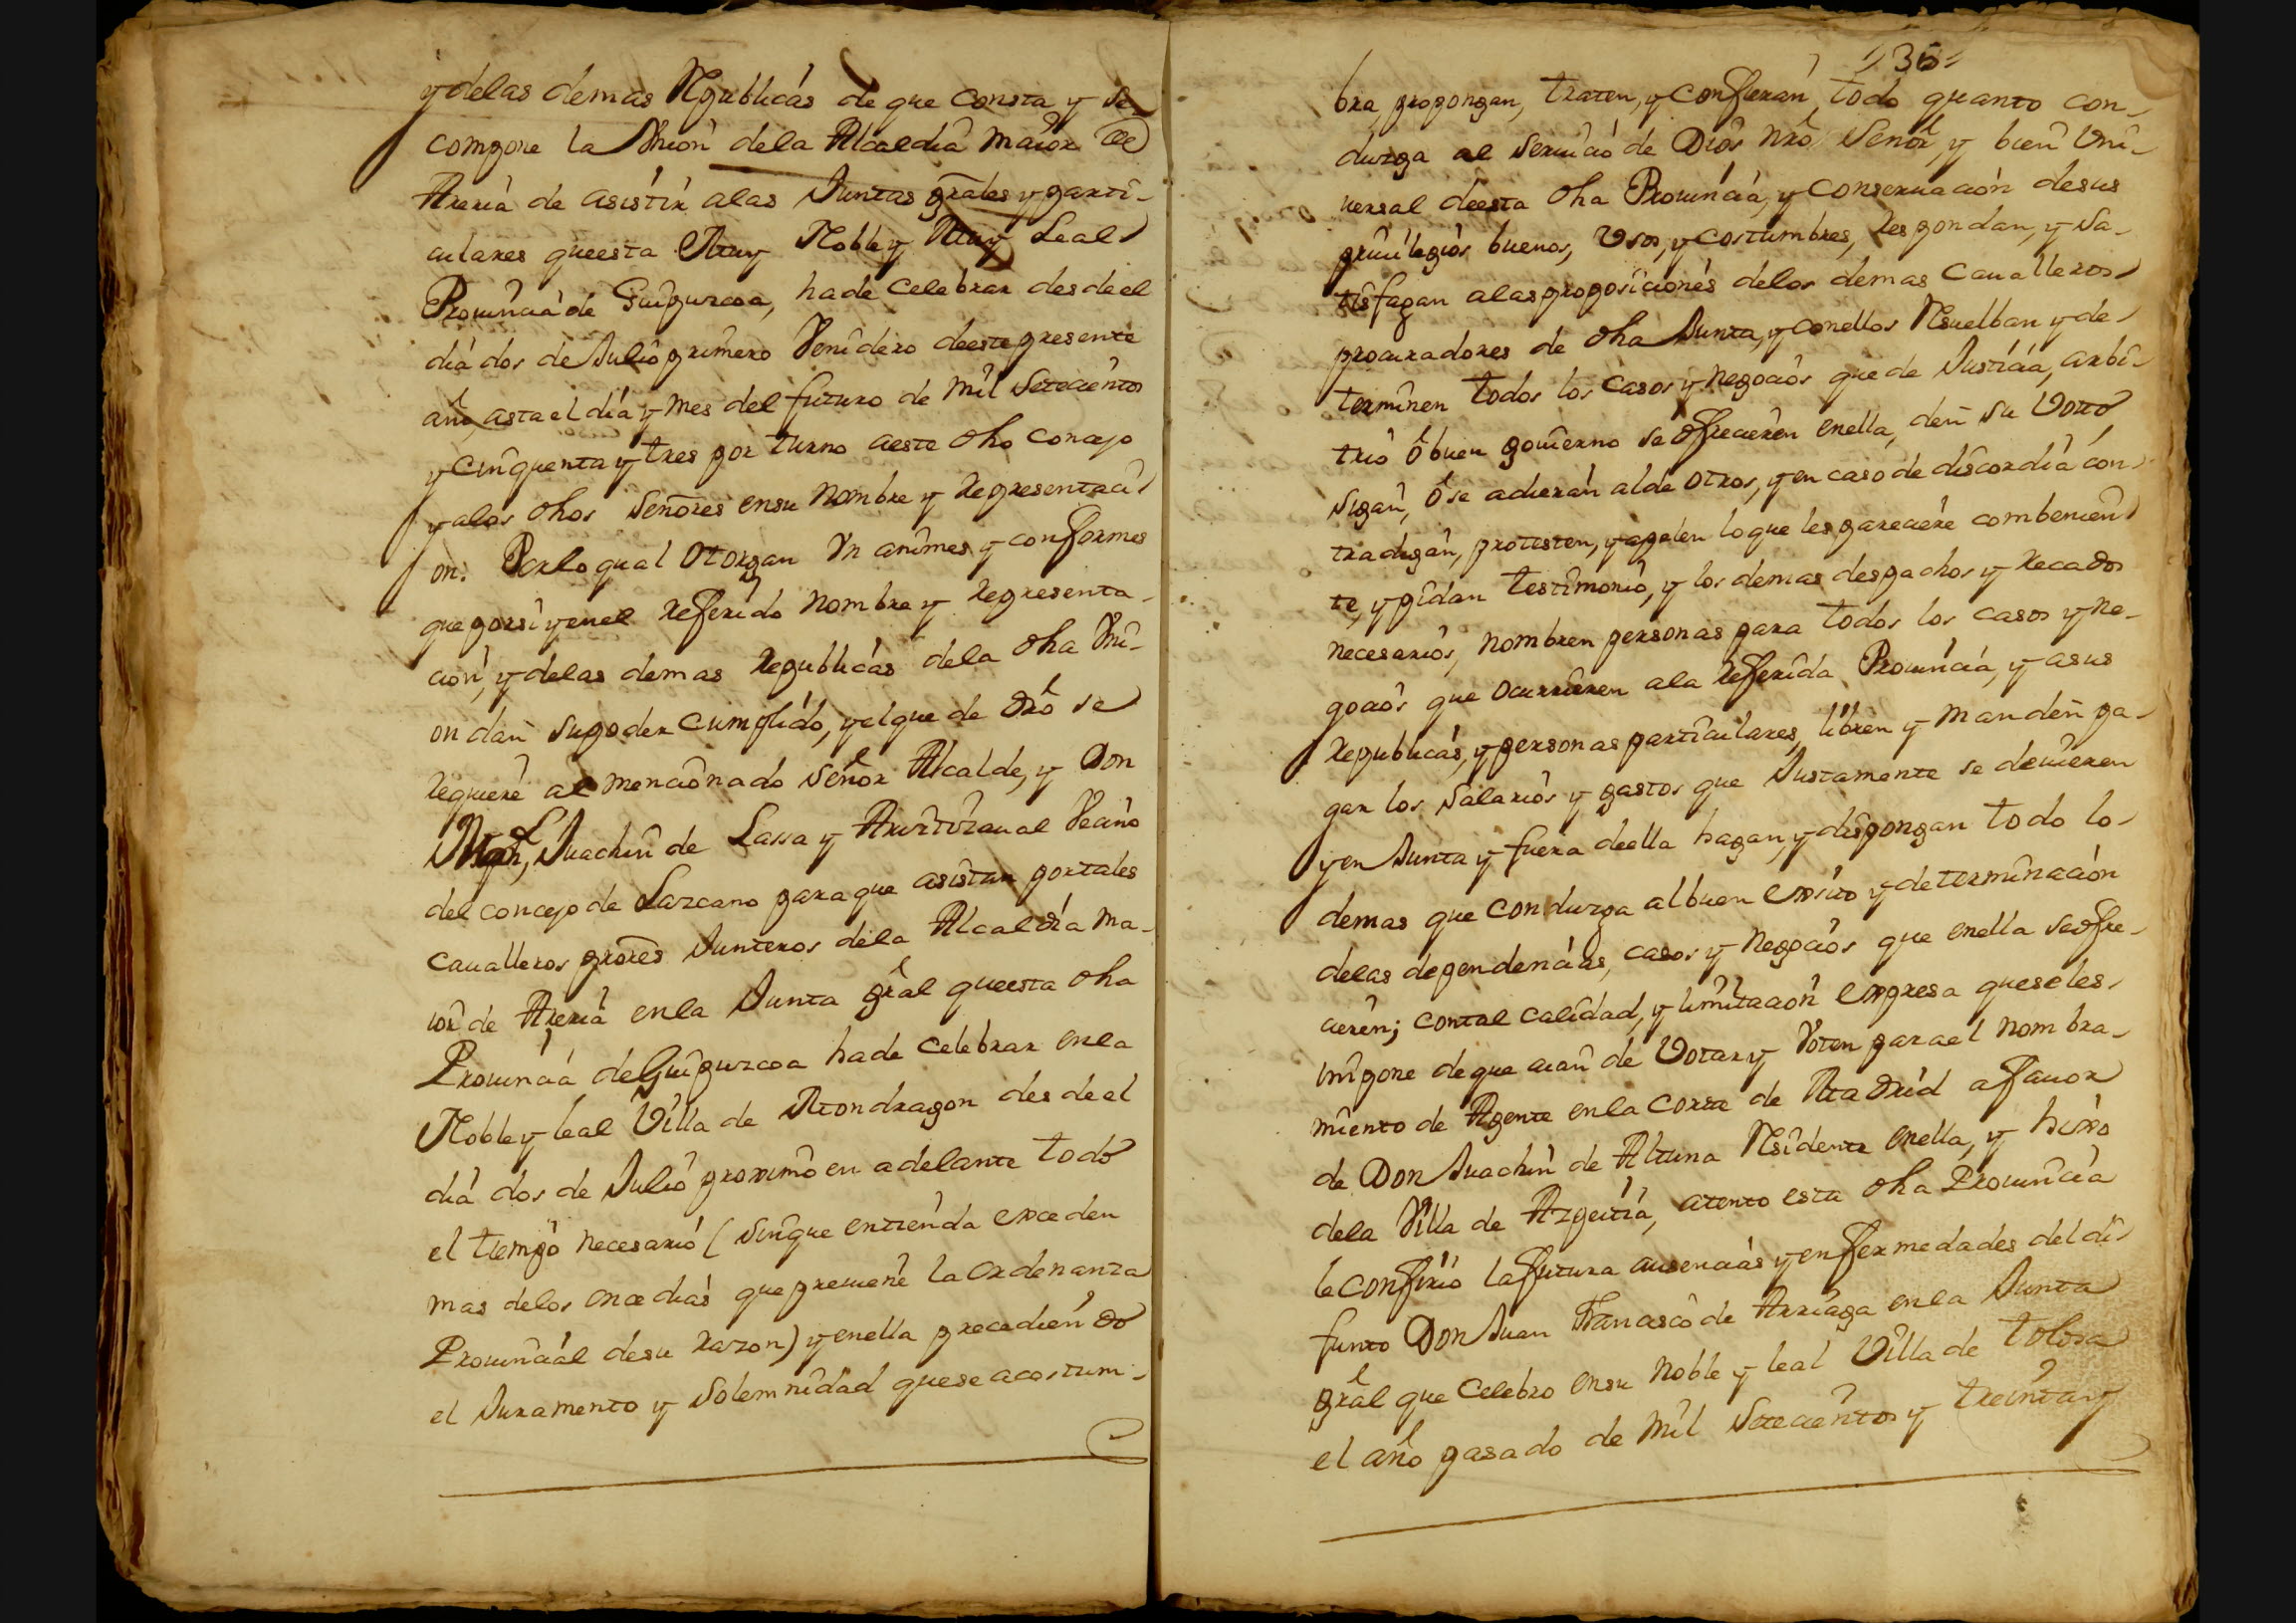 y delas demas Republicas de que Consta y se
compone la Union dela Alcaldia maior de
Areria de asistir alas Juntas grales y parti-
culares queesta Muy Noble y Muy Leal
Provincia de Guipuzcoa, hade Celebrar desde el
dia dos de Julio primero Venidero deeste presente
año, asta el dia y mes del futuro de mil Setecientos
y cinquenta y tres por turno aeste dho concejo
y alos dhos Señores ensu nombre y Representaci
on. Porlo qual Otorgan Vnanimes y conformes
que porsi y enel Referido nombre y Representa-
cion, y delas demas Republicas dela dha Vni-
on dan supoder cumplido, y elque de dro se
Requiere al mencionado Señor Alcalde, y Don
Juachin de Lassa y Aristizaual Vecino
del concejo de Lazcano para que asistan portales
caualleros prores Junteros dela Alcaldia ma-
ior de Areria enla Junta gral queesta dha
Provincia de Guipuzcoa hade Celebrar enla
Noble y leal Villa de Mondragon desde el
dia dos de Julio proximo en adelante todo
el tiempo necesario (sinque entienda exceden
mas delos once dias que preuiene la ordenanza
Provincial desu razon) y enella precediendo
el Juramento y Solemnidad quese acostum-
135
bra, propongan, traten, y confieran todo quanto con-
duzga al Seruicio de Dios nro Señor, y bien Vni-
uersal deesta dha Prouincia, y Conseruacion desus
priuilegios buenos, Vsos, y costumbres, Respondan, y Sa-
tisfagan alasproposiciones delos demas Caualleros
procuradores de dha Junta, y conellos Resuelban y de-
terminen todos los casos y negocios que de Justicia, arbi-
trio ô buen gouierno se ofrecieren enella, den su Voto
sigan, ô se adieran alde otros, y en caso de discordia con-
tradigan, protesten, y apelen loque les pareciere combenien
te, y pidan testimonio, y los demas despachos y Recados
necesarios, nombren personas para todos los casos y ne-
gocios que ocurrieren ala Referida Prouincia, y asus
Republicas, y personas particulares, libren y manden pa-
gar los Salarios y gastos que Justamente se deuieren
y en Junta y fuera deella hagan, y dispongan todo lo
demas que conduzga albuen exsito y determinacion
delas dependencias, casos y negocios que enella seofre-
cieren; contal calidad, y limitacion expresa queseles
impone deque aian de Votar y Voten parael nombra-
miento de Agente enla Corte de Madrid afauor
de Don Juachin de Altuna Residente enella, y hixo
dela Villa de Azpeitia, atento esta dha Prouincia
le confirio lafutura ausencias y enfermedades del di-
funto Don Juan Francisco de Arriaga enla Junta
gral que Celebro ensu Noble y leal Villa de Tolosa
el año pasado de mil Setecientos y treinta y